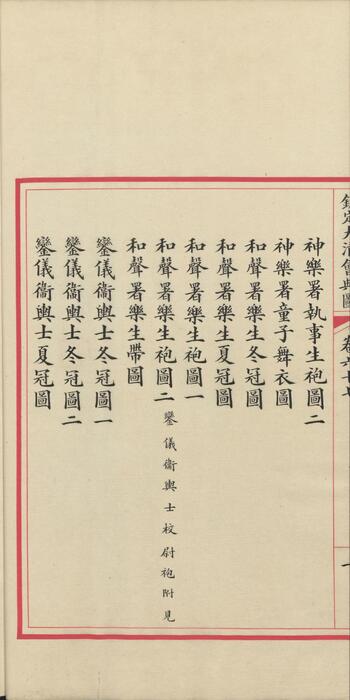 欽定大清會典圖 卷六十七
神樂署執事生袍圖二
神樂署童子舞衣圖
和聲署樂生冬冠圖
和聲署樂生夏冠圖
和聲署樂生袍圖一
和聲署樂生袍圖二 鑾儀衞輿士校尉袍附見
和聲署樂生帶圖
鑾儀衞輿士冬冠圖一
鑾儀衞輿士冬冠圖二
鑾儀衞輿士夏冠圖